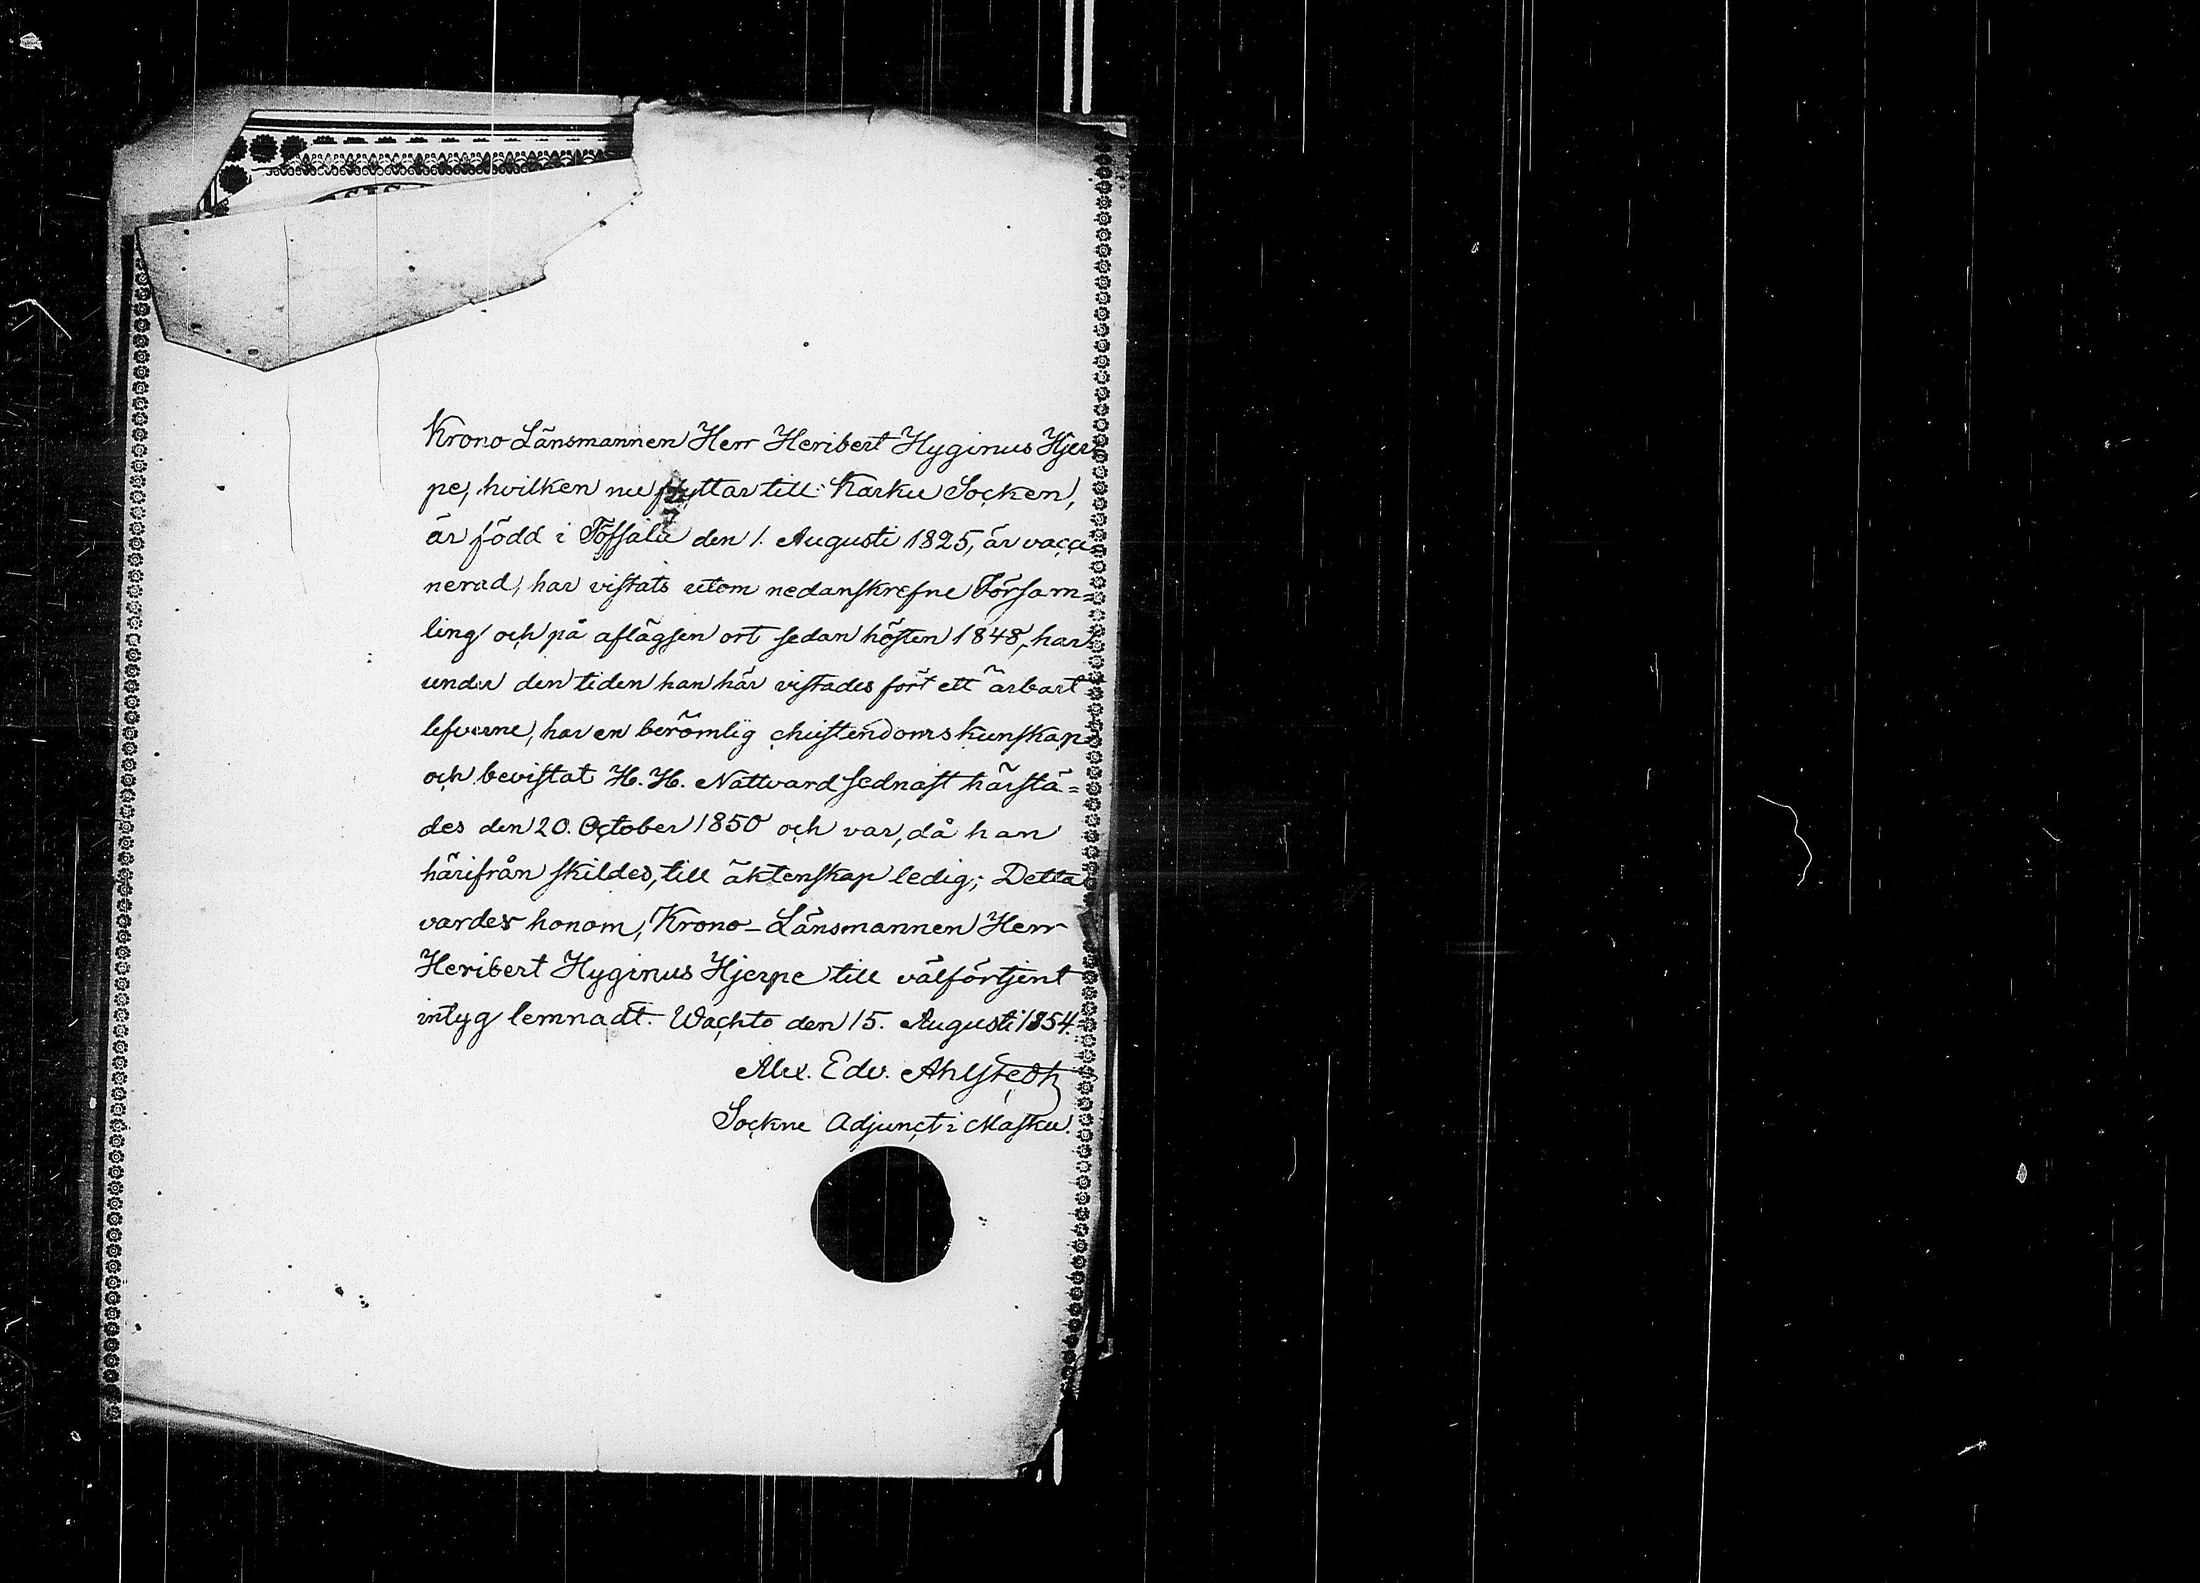 Krono Länsmannen Herr Heribert Hyginus Hjer
pe, hvilken nu flyttar till Karku Socken,
är född i Töfsala den 1. Augusti 1825, är vacci
nerad, har vistats utom nedanskrefne Försam=
ling och på aflägsen ort sedan hösten 1848, har
under den tiden han här vistades fört ett ärbart
lefverne, har en berömlig christendomskunskap
och bevistat H. H. Nattvard sednast härstä=
des den 20. October 1850 och var, då han
härifrån skildes, till äktenskap ledig; Detta
vardes honom, Krono-Länsmannen Herr
Heribert Hyginus Hjerpe till välförtjent
intyg lemnadt. Wachto den 15. Augusti 1854.
Alex. Edv. Ahlstedt
Sockne Adjunct i Masku.